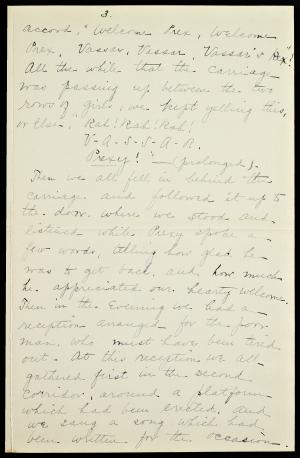 3.
accord, "Welcome Prex, Welcome
Prex, Vassar, Vassar, Vassar's Prex"!
All the while that the carriage
was passing up between the two
rows of girls, we kept yelling this,
or else, Rah! Rah! Rah!
V-A-S-S-A-R.
Prexy!" — (prolonged).
Then we all fell in behind the
carriage and followed it up to
the door, where we stood and
listened while Prexy spoke a
few words, telling how glad he
was to get back, and how much
he appreciated our hearty welcome.
Then in the Evening we had a
reception arranged for the poor
man, who must have been tired
out. At this reception we all
gathered first in the second
corridor, around a platform
which had been erected, and
we sang a song which had
been written for the occasion.